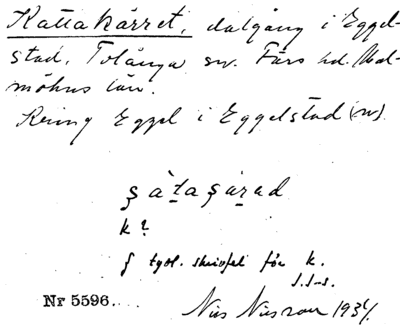 Kattakärret, dalgång i Eggel-
stad, Tolånga sn. Färs hd. Mal-
möhus län.
Kring Eggel i Eggelstad (n)
k?
ʃ tyd. skrivfel för k.
S.I-s.
Nr 5596.
Nils Nilsson 1934.